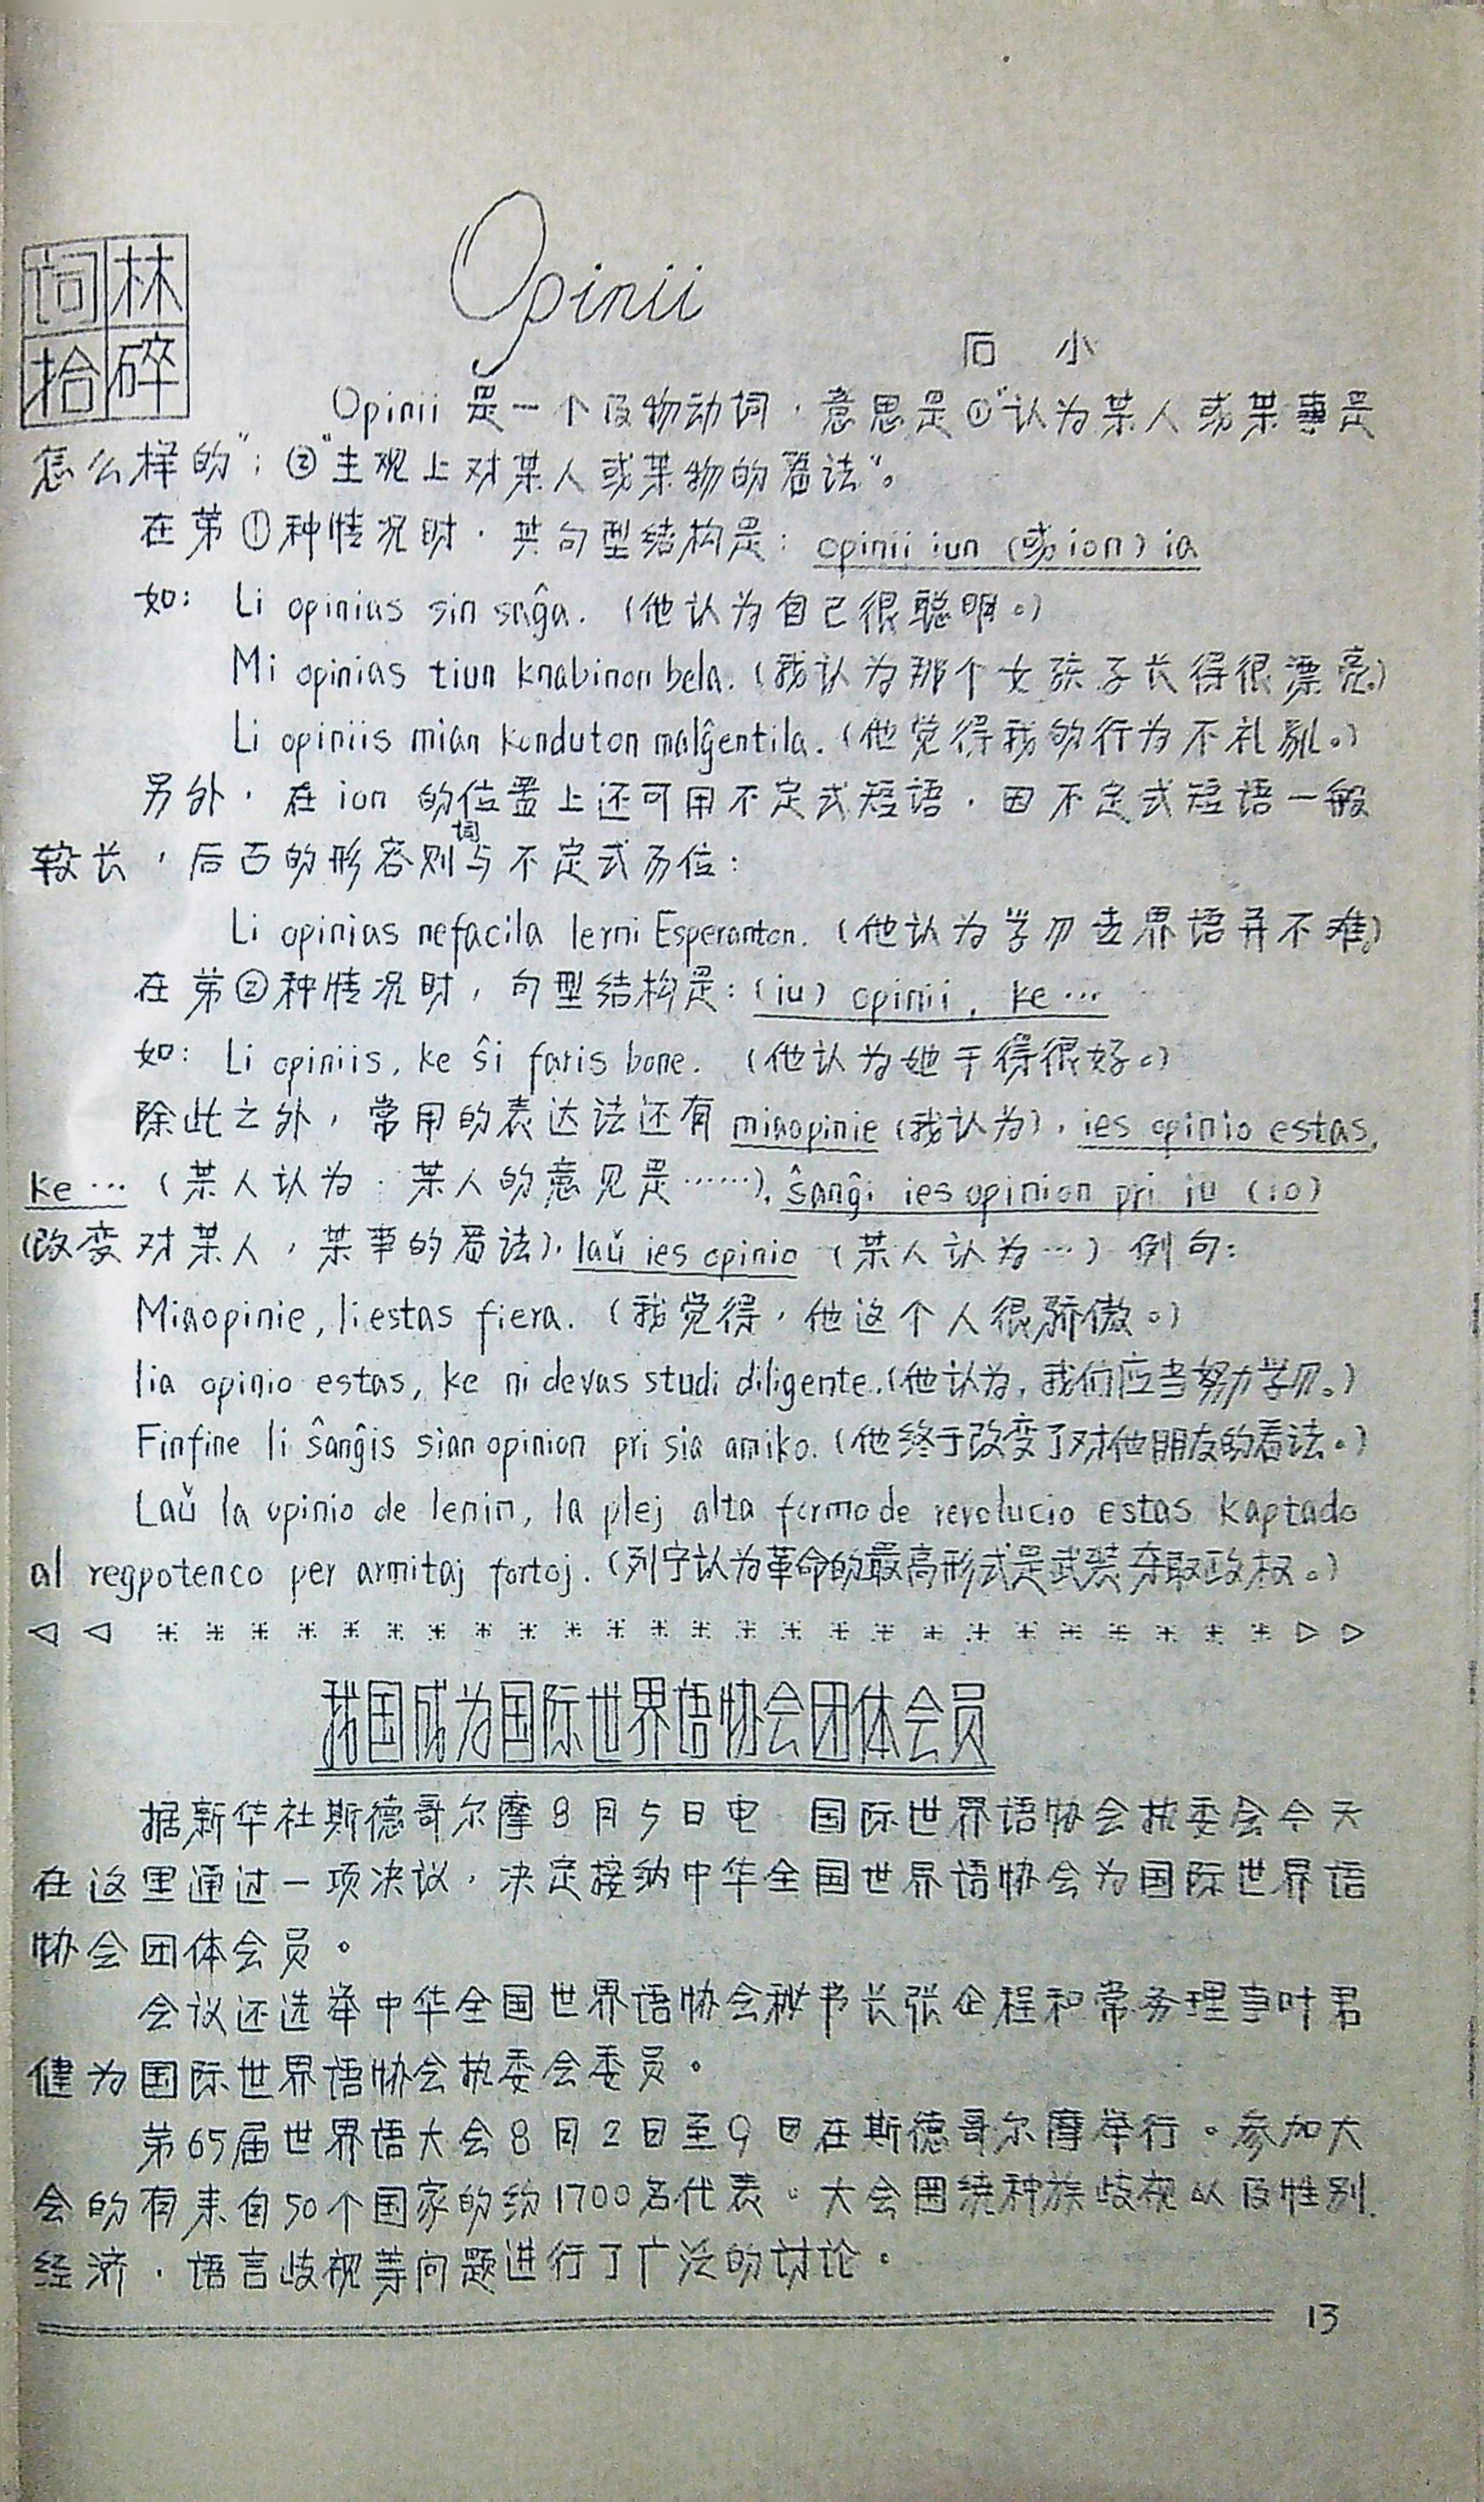 词林
拾碎
Opinii
石 小
Opinii 是一个及物动词，意思是①“认为某人或某事是
怎么样的”；②“主观上对某人或某物的看法”。
在第①种情况时，其句型结构是：opinii iun (或ion) ia
如：Li opinias sin saĝa.（他认为自己很聪明。）
Mi opinias tiun knabinon bela.（我认为那个女孩子长得很漂亮。）
Li opiniis mian konduton malĝentila.（他觉得我的行为不礼貌。）
另外，在 ion 的位置上还可用不定式短语，因不定式短语一般
较长，后面的形容词则与不定式易位：
Li opinias nefacila lerni Esperanton.（他认为学习世界语并不难。）
在第②种情况时，句型结构是：(iu) opinii, ke…
如：Li opiniis, ke ŝi faris bone.（他认为她干得很好。）
除此之外，常用的表达法还有 miaopinie（我认为），ies opinio estas,
ke…（某人认为，某人的意见是……），ŝanĝi ies opinion pri iu (io)
（改变对某人，某事的看法），laŭ ies opinio（某人认为…）例句：
Miaopinie, li estas fiera.（我觉得，他这个人很骄傲。）
lia opinio estas, ke ni devas studi diligente.（他认为，我们应当努力学习。）
Finfine li ŝanĝis sian opinion pri sia amiko.（他终于改变了对他朋友的看法。）
Laŭ la opinio de lenin, la plej alta formo de revolucio estas kaptado
al regpotenco per armitaj fortoj.（列宁认为革命的最高形式是武装夺取政权。）
我国成为国际世界语协会团体会员
据新华社斯德哥尔摩8月5日电 国际世界语协会执委会今天
在这里通过一项决议，决定接纳中华全国世界语协会为国际世界语
协会团体会员。
会议还选举中华全国世界语协会秘书长张企程和常务理事叶君
健为国际世界语协会执委会委员。
第65届世界语大会8月2日至9日在斯德哥尔摩举行。参加大
会的有来自50个国家的约1700名代表。大会围绕种族歧视以及性别、
经济、语言歧视等问题进行了广泛的讨论。
13